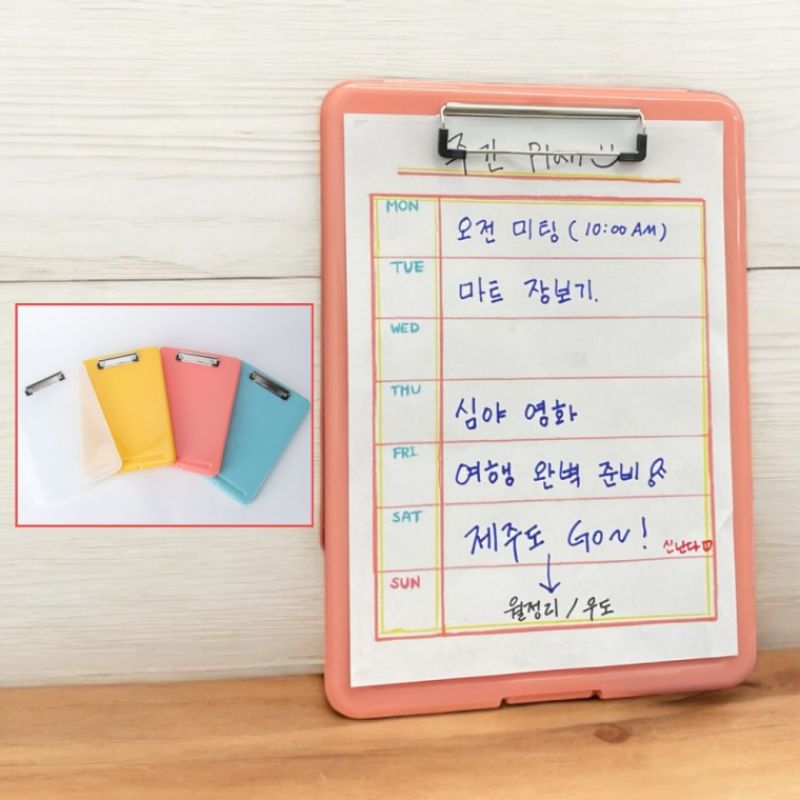 주간
MON 오전 미팅 (10:00 AM)
TUE 마트 장보기.
WED
THU 심야 영화
FRI 여행 완벽 준비
SAT 제주도 GO~! 신난다
SUN 월정리 / 우도